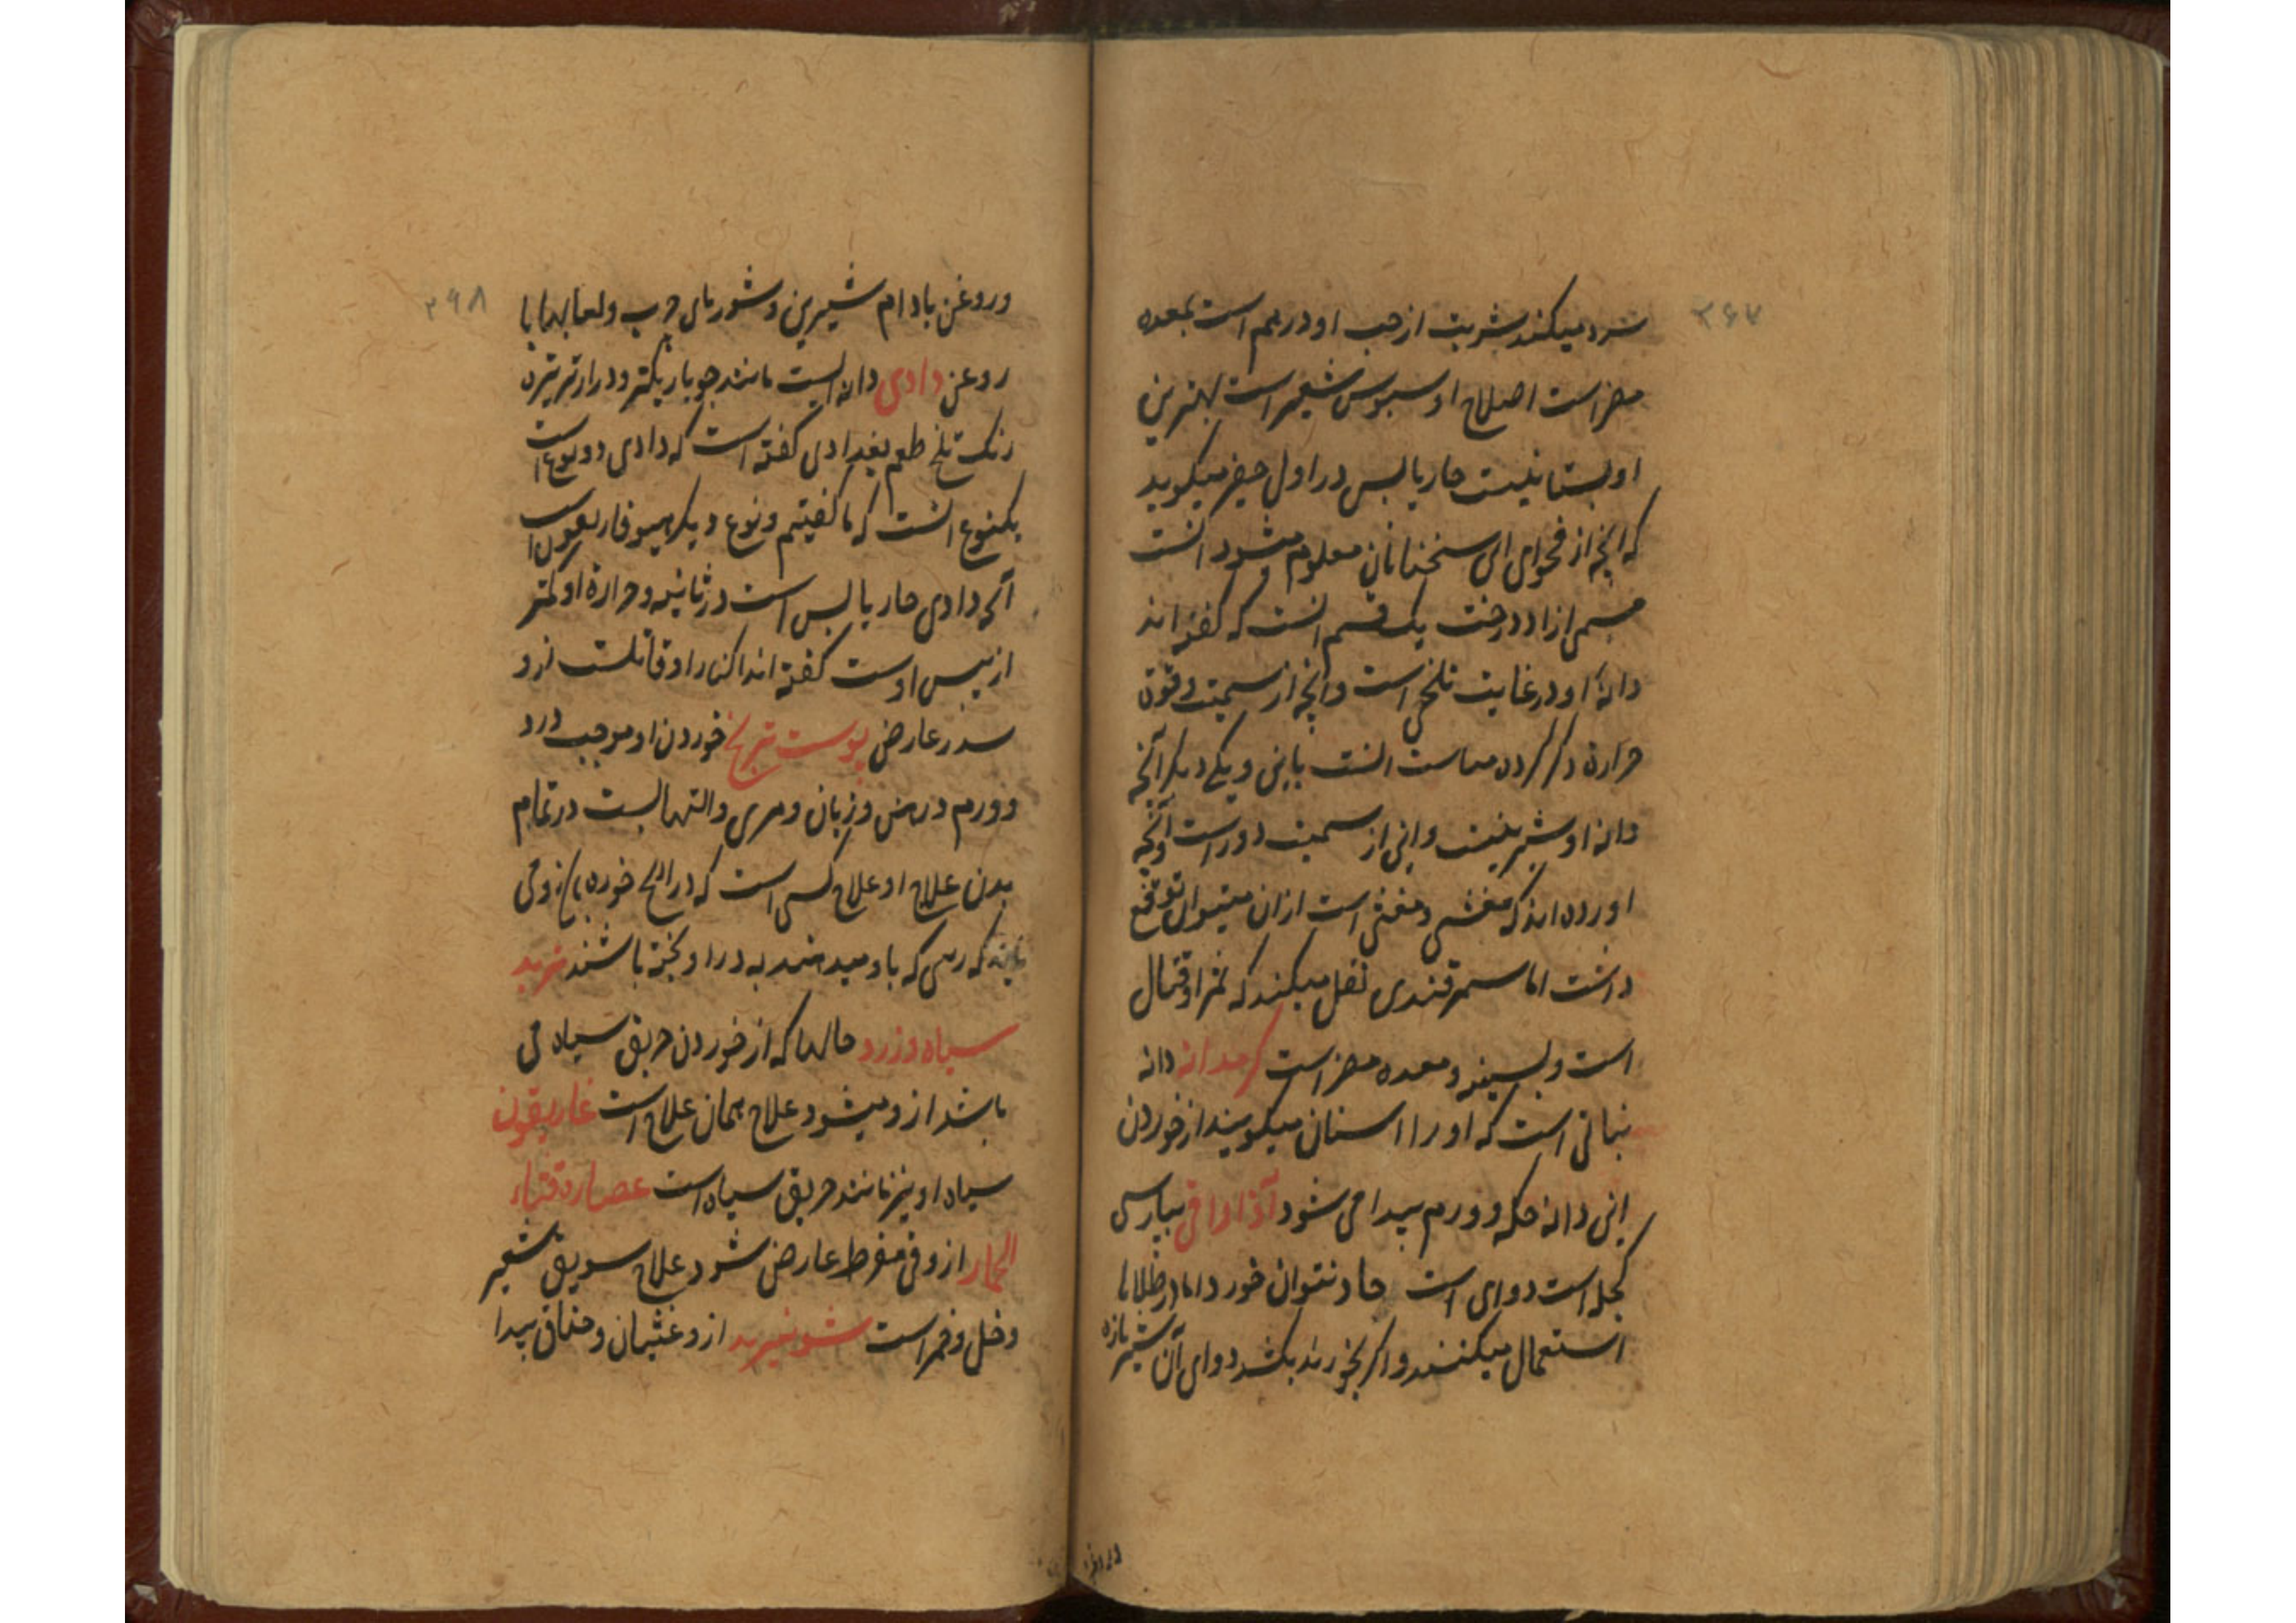 ۲۶۷
سرد میکند شربت از حب او درهم است بمعده
مضر است اصلاح او سبوس شعیر است بهترین
او بستانیست حار یابس در اول میگوید
که انچه از فحوای سخنانان معلوم میشود انست
ازاددرخت یک قسم انست که گفته اند
دانه او در غایت تلخی است وانچه از سمیت و قوة
حرارة ذکر کرده انست باین و یکی دیگر آنچه
دانه او شیرینست واین از سمیت دور است وآنچه
اورده اند که و مغثی است ازان میتوان توقع
داشت اما سمرقندی نقل میکند که ثمر او قتال
است و بسینه و معده مضر است کرمدانه دانه
نباتی است که او را اسنان میکویند از خوردن
این دانه حکه و ورم پیدا می شود آذاراقی بپارسی
کچله است دوای است حاد نتوان خورد اما در طلاها
استعمال میکنند و اگر بخورند بکشد دوای آن شیر تازه
۲۶۸
وروغن بادام شیرین و شوربای چرب ولعابها با
روغن دادی دانه ایست مانند جو باریکتر ودرازتر تیره
رنک تلخ طعم بغدادی گفته است که دادی دو نوع است
یکنوع انست که ما گفتیم ونوع دیگر هیوفاریقون است
آنچه دادی حار یابس است در ثانیه و حرارة او کمتر
از یبس اوست گفته اند اکثار او قاتلست ازو
سدر عارض پوست تبریخ خوردن او موجب درد
و ورم دهن وزبان ومری والتهابست در تمام
بدن علاج او علاج کسی است که ذراریح خورده وقی
که باو به در او پخته باشند تربد
سیاه و زرد حالها که از خوردن خربق سیاه می
باشد ازو میشود علاج همان علاج است غاریقون
سیاه او نیز مانند خربق سیاه است عصاره قثاء
الحمار ازو قی مفرط عارض شود علاج سویق شعیر
وخل وخمر است شونیز ازو غثیان و خناق پیدا